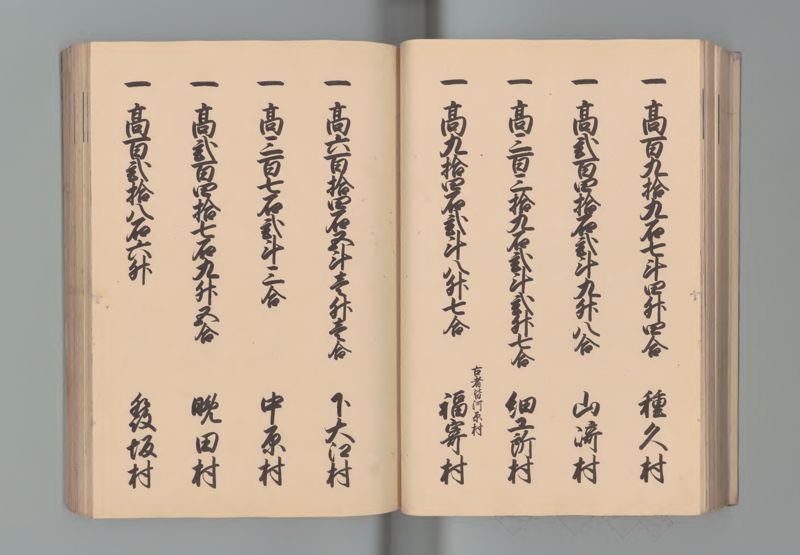 一 高百九拾九石七斗四升四合 種久村
一 高弐百四拾石弐斗九升八合 山濟村
一 高三百三拾九石弐斗弐升七合 細工所村
一 高九拾四石弐斗八升七合 福寄村
古者皆河原村
一 高六百拾四石五斗壱升壱合 下大江村
一 高三百七石弐斗三合 中原村
一 高弐百四拾七石九升五合 晩田村
一 高百弐拾八石六升 發坂村